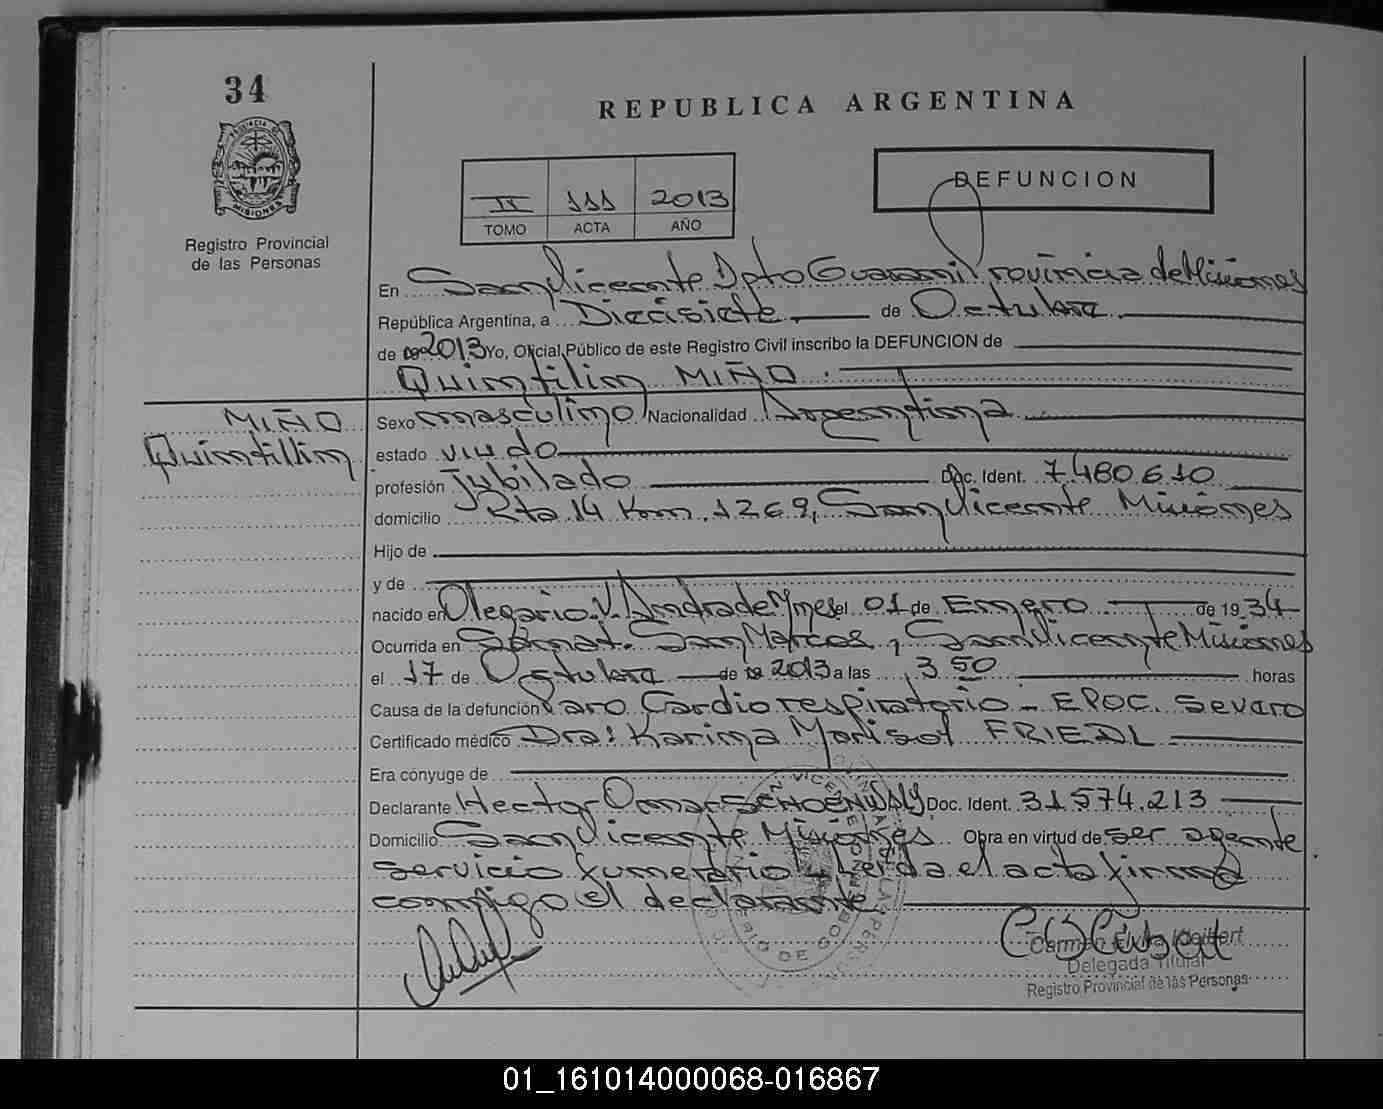 34
REPUBLICA ARGENTINA
PROVINCIA DE
MISIONES
Registro Provincial
de las Personas
DEFUNCION
II 111 2013
TOMO ACTA AÑO
En San Vicente Dpto Guarani Provincia de Misiones
República Argentina, a Diecisiete de Octubre
de 2013 Yo, Oficial Público de este Registro Civil inscribo la DEFUNCION de
Quintilin MIÑO.
MIÑO
Quintillin
Sexo masculino Nacionalidad Argentina
estado viudo
profesión Jubilado Doc. Ident. 7.480.610
domicilio Rta 14 Km. 1269, San Vicente Misiones
Hijo de
y de
nacido en Olegario V. Andrade Mnes el 01 de Enero de 1934
Ocurrida en Sanat. San Marcos, San Vicente Misiones
el 17 de Octubre de 2013 a las 3 50 horas
Causa de la defunción Paro Cardiorespiratorio - EPOC. Severo
Certificado médico Dra: Karina Marisol FRIEDL
Era cónyuge de
Declarante Hector Omar Doc. Ident. 31.574.213
Domicilio San Vicente Misiones. Obra en virtud de ser agente
servicio funerario leida el acta firma
conmigo el declarante
Delegada Titular
Registro Provincial de las Personas
01_161014000068-016867